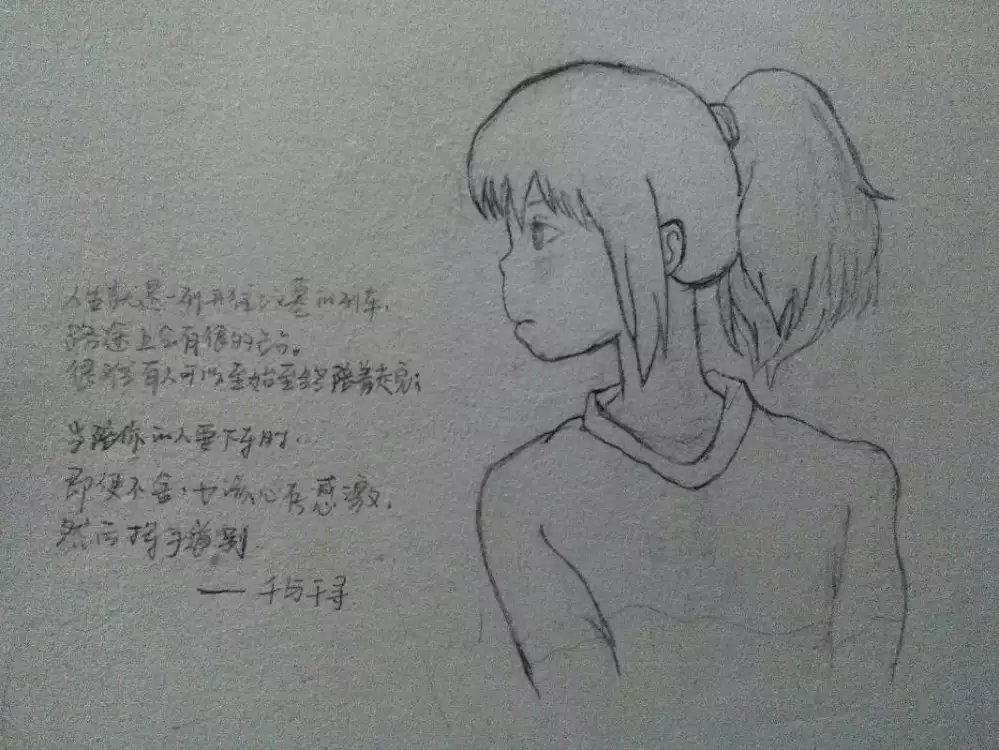 人生就是一列开往坟墓的列车，
路途上会有很的站。
很难有人可以至始至终陪着走完；
当陪你的人要下车时．
即使不舍，也该心存感激，
然后挥手道别
—— 千与千寻